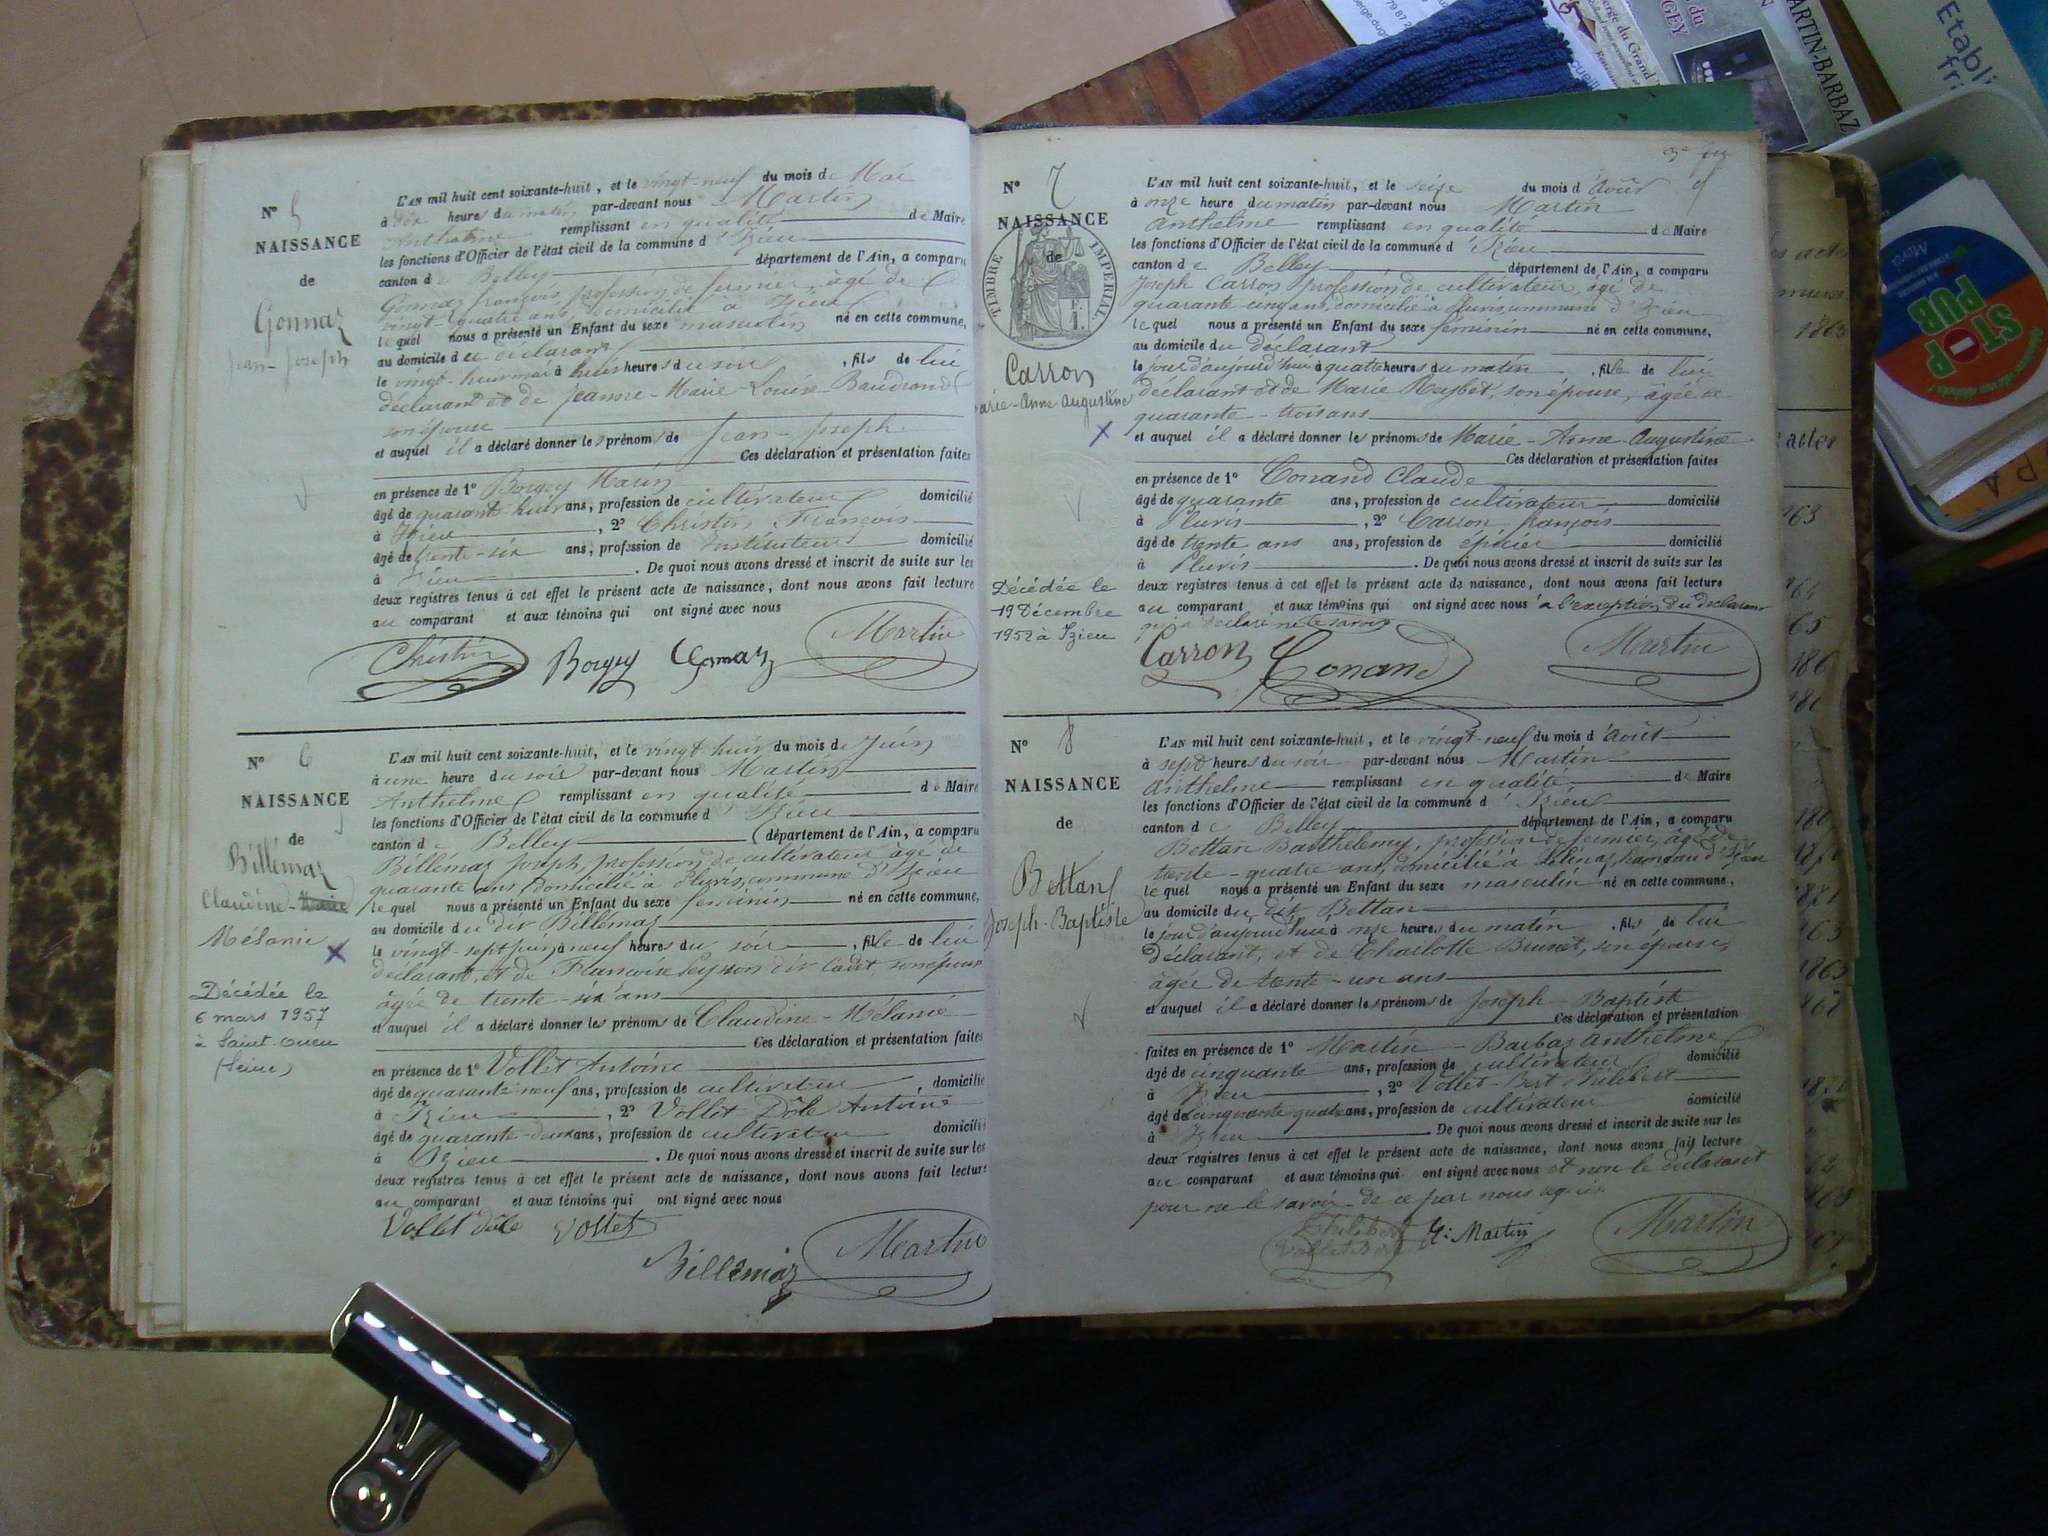 N° 5
NAISSANCE
de
Gonnaz
Jean-Joseph
L'AN mil huit cent soixante-huit, et le vingt-neuf du mois de Mai
à dix heures du matin par-devant nous Martin
Anthelme remplissant en qualité de Maire
les fonctions d'Officier de l'état civil de la commune d'Izieu
canton de Belley département de l'Ain, a comparu
Gonnaz françois, profession de fermier, âgé de
vingt-quatre ans, domicilié à Izieu
lequel nous a présenté un Enfant du sexe masculin né en cette commune,
au domicile du déclarant
le vingt-huit mai à huit heures du soir, fils de lui
déclarant et de Jeanne-Marie-Louise Baudrand
son épouse
et auquel il a déclaré donner les prénoms de Jean-Joseph
Ces déclaration et présentation faites
en présence de 1° Borgey Marin
âgé de quarante-huit ans, profession de cultivateur domicilié
à Izieu, 2° Christin François
âgé de trente-six ans, profession de Instituteur domicilié
à Izieu. De quoi nous avons dressé et inscrit de suite sur les
deux registres tenus à cet effet le présent acte de naissance, dont nous avons fait lecture
au comparant et aux témoins qui ont signé avec nous
Christin Borgey Gonnaz Martin
N° 6
NAISSANCE
de
Billémaz
Claudine-Marie
Mélanie
Décédée le
6 mars 1957
à Saint-Ouen
(Seine)
L'AN mil huit cent soixante-huit, et le vingt huit du mois de Juin
à une heure du soir par-devant nous Martin
Anthelme remplissant en qualité de Maire
les fonctions d'Officier de l'état civil de la commune d'Izieu
canton de Belley département de l'Ain, a comparu
Billémaz Joseph, profession de cultivateur âgé de
quarante ans domicilié à Pluvis, commune d'Izieu
lequel nous a présenté un Enfant du sexe féminin né en cette commune,
au domicile du dit Billémaz
le vingt-sept juin à neuf heures du soir, fille de lui
déclarant, et de Françoise Peysson dit Cadet, son épouse
âgée de trente-six ans
et auquel il a déclaré donner les prénoms de Claudine-Mélanie
Ces déclaration et présentation faites
en présence de 1° Vollet Antoine
âgé de quarante neuf ans, profession de cultivateur, domicilié
à Izieu, 2° Vollet Dôle Antoine
âgé de quarante-deux ans, profession de cultivateur domicilié
à Izieu. De quoi nous avons dressé et inscrit de suite sur les
deux registres tenus à cet effet le présent acte de naissance, dont nous avons fait lecture
au comparant et aux témoins qui ont signé avec nous
Vollet dôle Vollet
Billémaz Martin
N° 7
NAISSANCE
de
TIMBRE IMPERIAL
Carron
Marie-Anne Augustine
Décédée le
19 Décembre
1952 à Izieu
L'AN mil huit cent soixante-huit, et le seize du mois d'août
à onze heure du matin par-devant nous Martin
Anthelme remplissant en qualité de Maire
les fonctions d'Officier de l'état civil de la commune d'Izieu
canton de Belley département de l'Ain, a comparu
Joseph Carron profession de cultivateur, âgé de
quarante-cinq ans, domicilié à Pluvis, commune d'Izieu
lequel nous a présenté un Enfant du sexe féminin né en cette commune,
au domicile du déclarant
le jour d'aujourd'hui à quatre heures du matin, fille de lui
déclarant et de Marie Reybet, son épouse, âgée de
quarante-trois ans
et auquel il a déclaré donner les prénoms de Marie-Anne-Augustine
Ces déclaration et présentation faites
en présence de 1° Conand Claude
âgé de quarante ans, profession de cultivateur domicilié
à Pluvis, 2° Carron françois
âgé de trente ans ans, profession de épicier domicilié
à Pluvis. De quoi nous avons dressé et inscrit de suite sur les
deux registres tenus à cet effet le présent acte de naissance, dont nous avons fait lecture
au comparant et aux témoins qui ont signé avec nous à l'exception du déclarant
qui a déclaré ne le savoir
Carron Conand Martin
N° 8
NAISSANCE
de
Bettan
Joseph-Baptiste
L'AN mil huit cent soixante-huit, et le vingt-neuf du mois d'août
à sept heures du soir par-devant nous Martin
Anthelme remplissant en qualité de Maire
les fonctions d'Officier de l'état civil de la commune d'Izieu
canton de Belley département de l'Ain, a comparu
Bettan Barthélemy, profession de fermier, âgé de
trente-quatre ans, domicilié à hameau d'Izieu
lequel nous a présenté un Enfant du sexe masculin né en cette commune,
au domicile du dit Bettan
le jour d'aujourd'hui à onze heures du matin, fils de lui
déclarant, et de Charlotte Brunet, son épouse,
âgée de trente-un ans
et auquel il a déclaré donner les prénoms de Joseph Baptiste
Ces déclaration et présentation
faites en présence de 1° Martin-Barbaz Anthelme
âgé de cinquante ans, profession de cultivateur domicilié
à Izieu, 2° Vollet-Bert Philibert
âgé de cinquante quatre ans, profession de cultivateur domicilié
à Izieu. De quoi nous avons dressé et inscrit de suite sur les
deux registres tenus à cet effet le présent acte de naissance, dont nous avons fait lecture
au comparant et aux témoins qui ont signé avec nous et non le déclarant
pour ne le savoir de ce par nous
Philibert
Vollet Bert Martin Martin
STOP
PUB
MARTIN-BARBAZ
Etabli